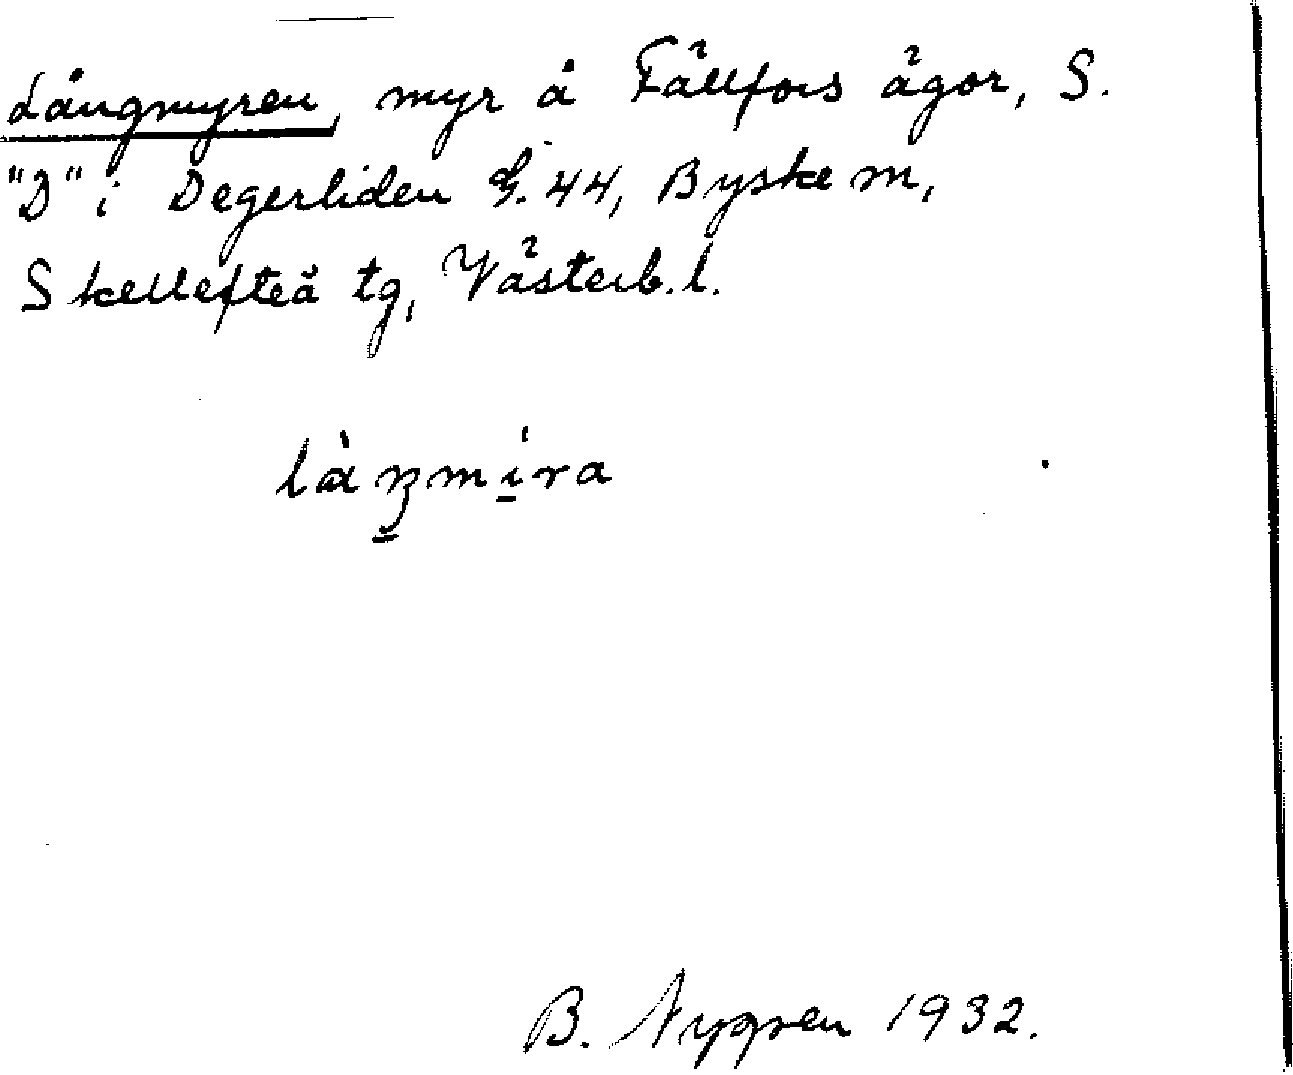 Långmyren, myr å Fällfors ägor, S.
"D" i Degerliden G. 44, Byske m,
Skellefteå tg, Västerb.l.
làŋmíra
B. Nygren 1932.